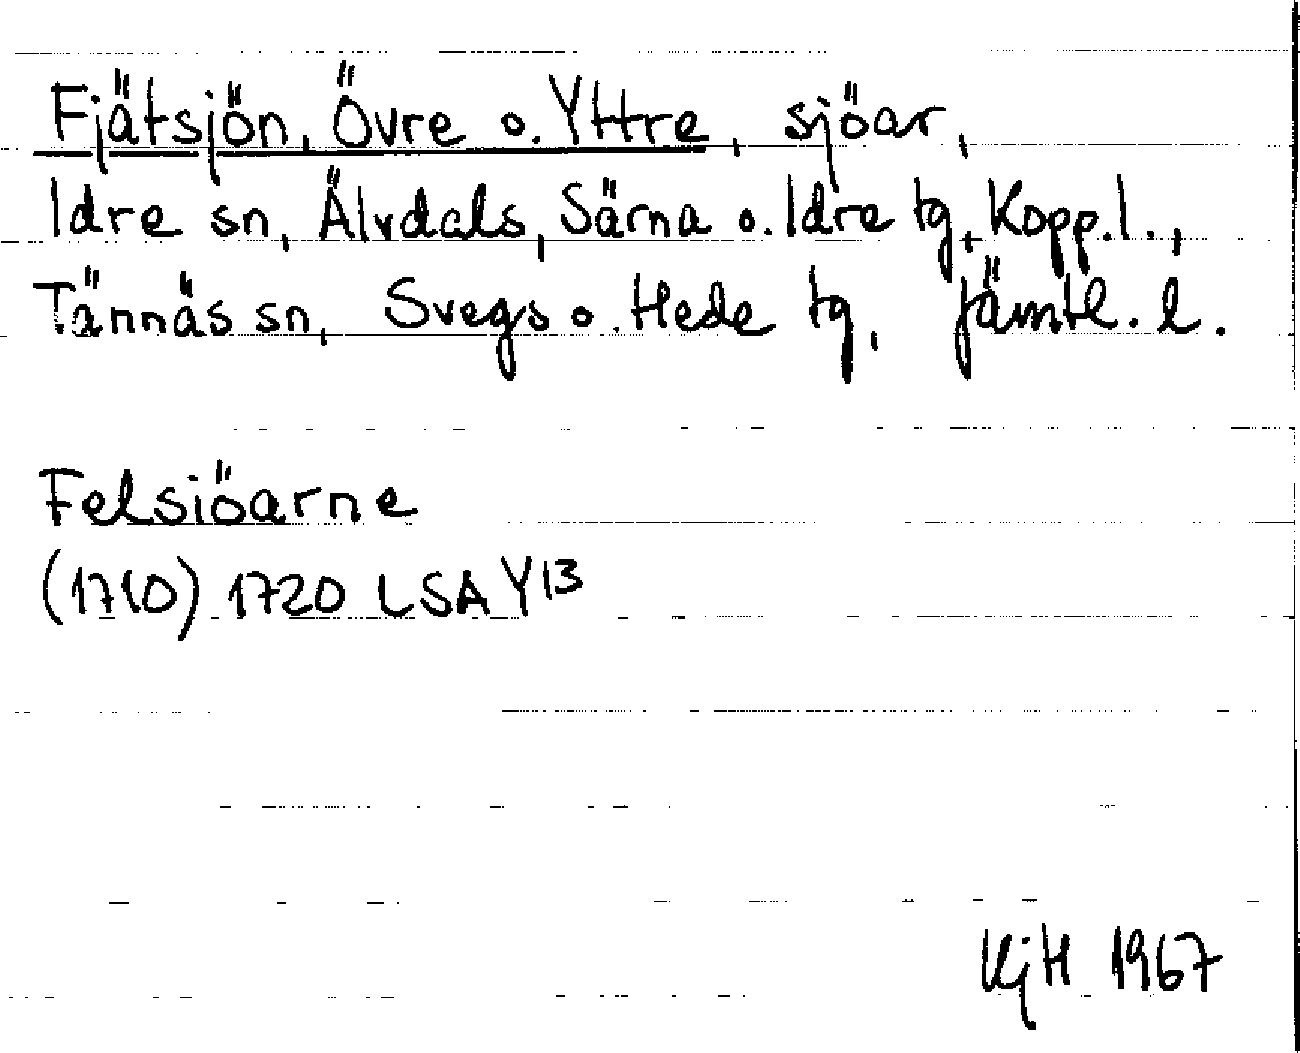 Fjätsjön, Övre o. Yttre, sjöar,
Idre sn, Älvdals, Särna o. Idre tg, Kopp.l.,
Tännäs sn, Svegs o. Hede tg, Jämtl. l.
Felsiöarne
(1710) 1720 LSA Y13
KjH 1967